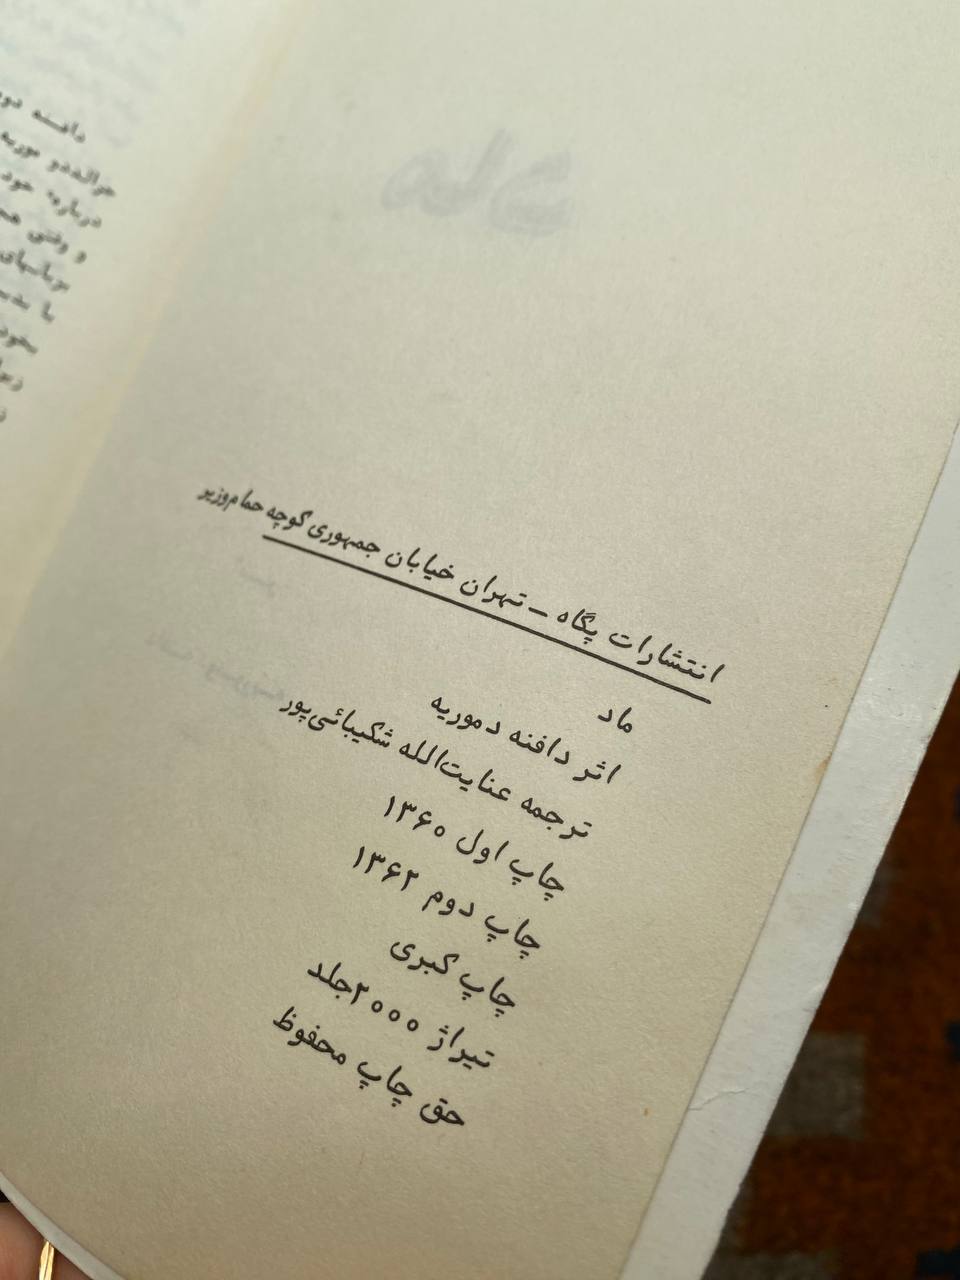 انتشارات پگاه – تهران خیابان جمهوری کوچه حمام وزیر
ماد
اثر دافنه دموریه
ترجمه عنایت‌الله شکیبائی‌پور
چاپ اول ۱۳۶۰
چاپ دوم ۱۳۶۲
چاپ کبری
تیراژ ۲۰۰۰جلد
حق چاپ محفوظ
دافنه
موریه
درباره‌ خود
و وقتی